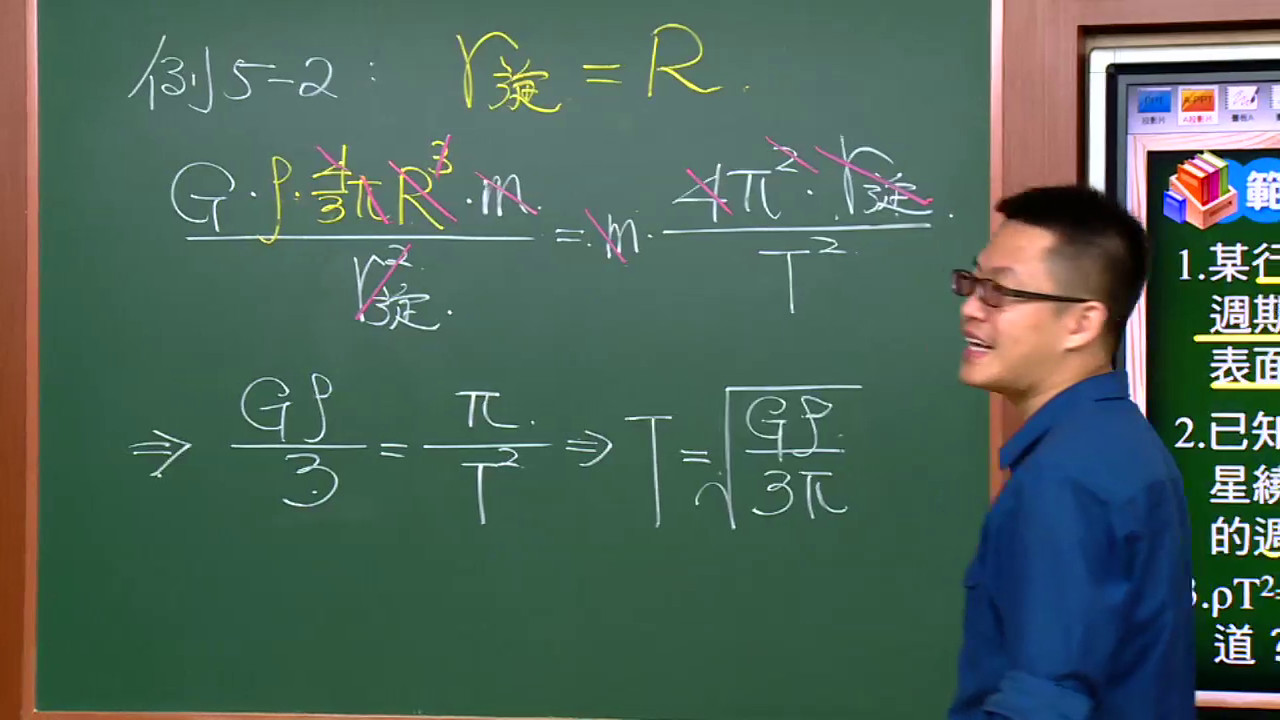 例5-2: r旋 = R.
G·ρ·4/3πR³·m / r旋² = m·4π²·r旋 / T²
⇒ Gρ/3 = π/T² ⇒ T = √(Gρ/3π)
PPT
A-PPT
投影片
A投影片
畫板A
範
1.某行
週期
表面
2.已知
星繞
的週
3.ρT²=
道?